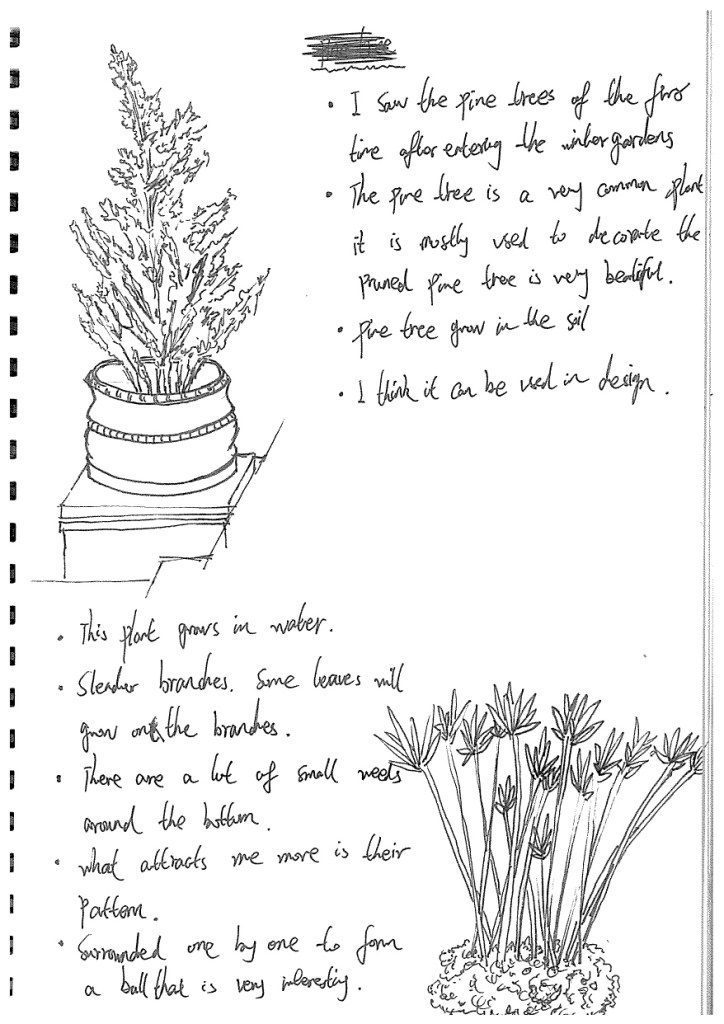 • I saw the pine trees of the firs
time after entering the winter gardens
• The pine tree is a very common plant
it is mostly used to decorate the
pruned pine tree is very beatiful.
• pine tree grow in the soil
• I think it can be used in design.
• This plant grows in water.
• Slender branches. Some leaves will
grow on the branches.
• There are a lot of small weeds
around the bottom.
• what attracts me more is their
pattern.
• Surrounded one by one to form
a ball that is very interesting.